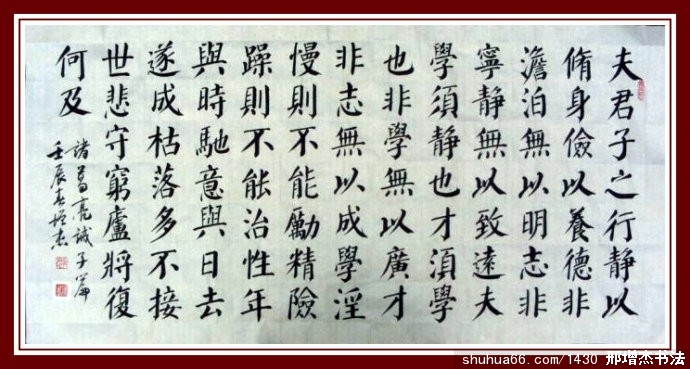 夫君子之行靜以
脩身儉以養德非
澹泊無以明志非
寧靜無以致遠夫
學須靜也才須學
也非學無以廣才
非志無以成學淫
慢則不能勵精險
躁則不能治性年
與時馳意與日去
遂成枯落多不接
世悲守窮廬將復
何及
諸葛亮誡子篇
壬辰春增杰
shuhua66.com/1430 邢增杰书法